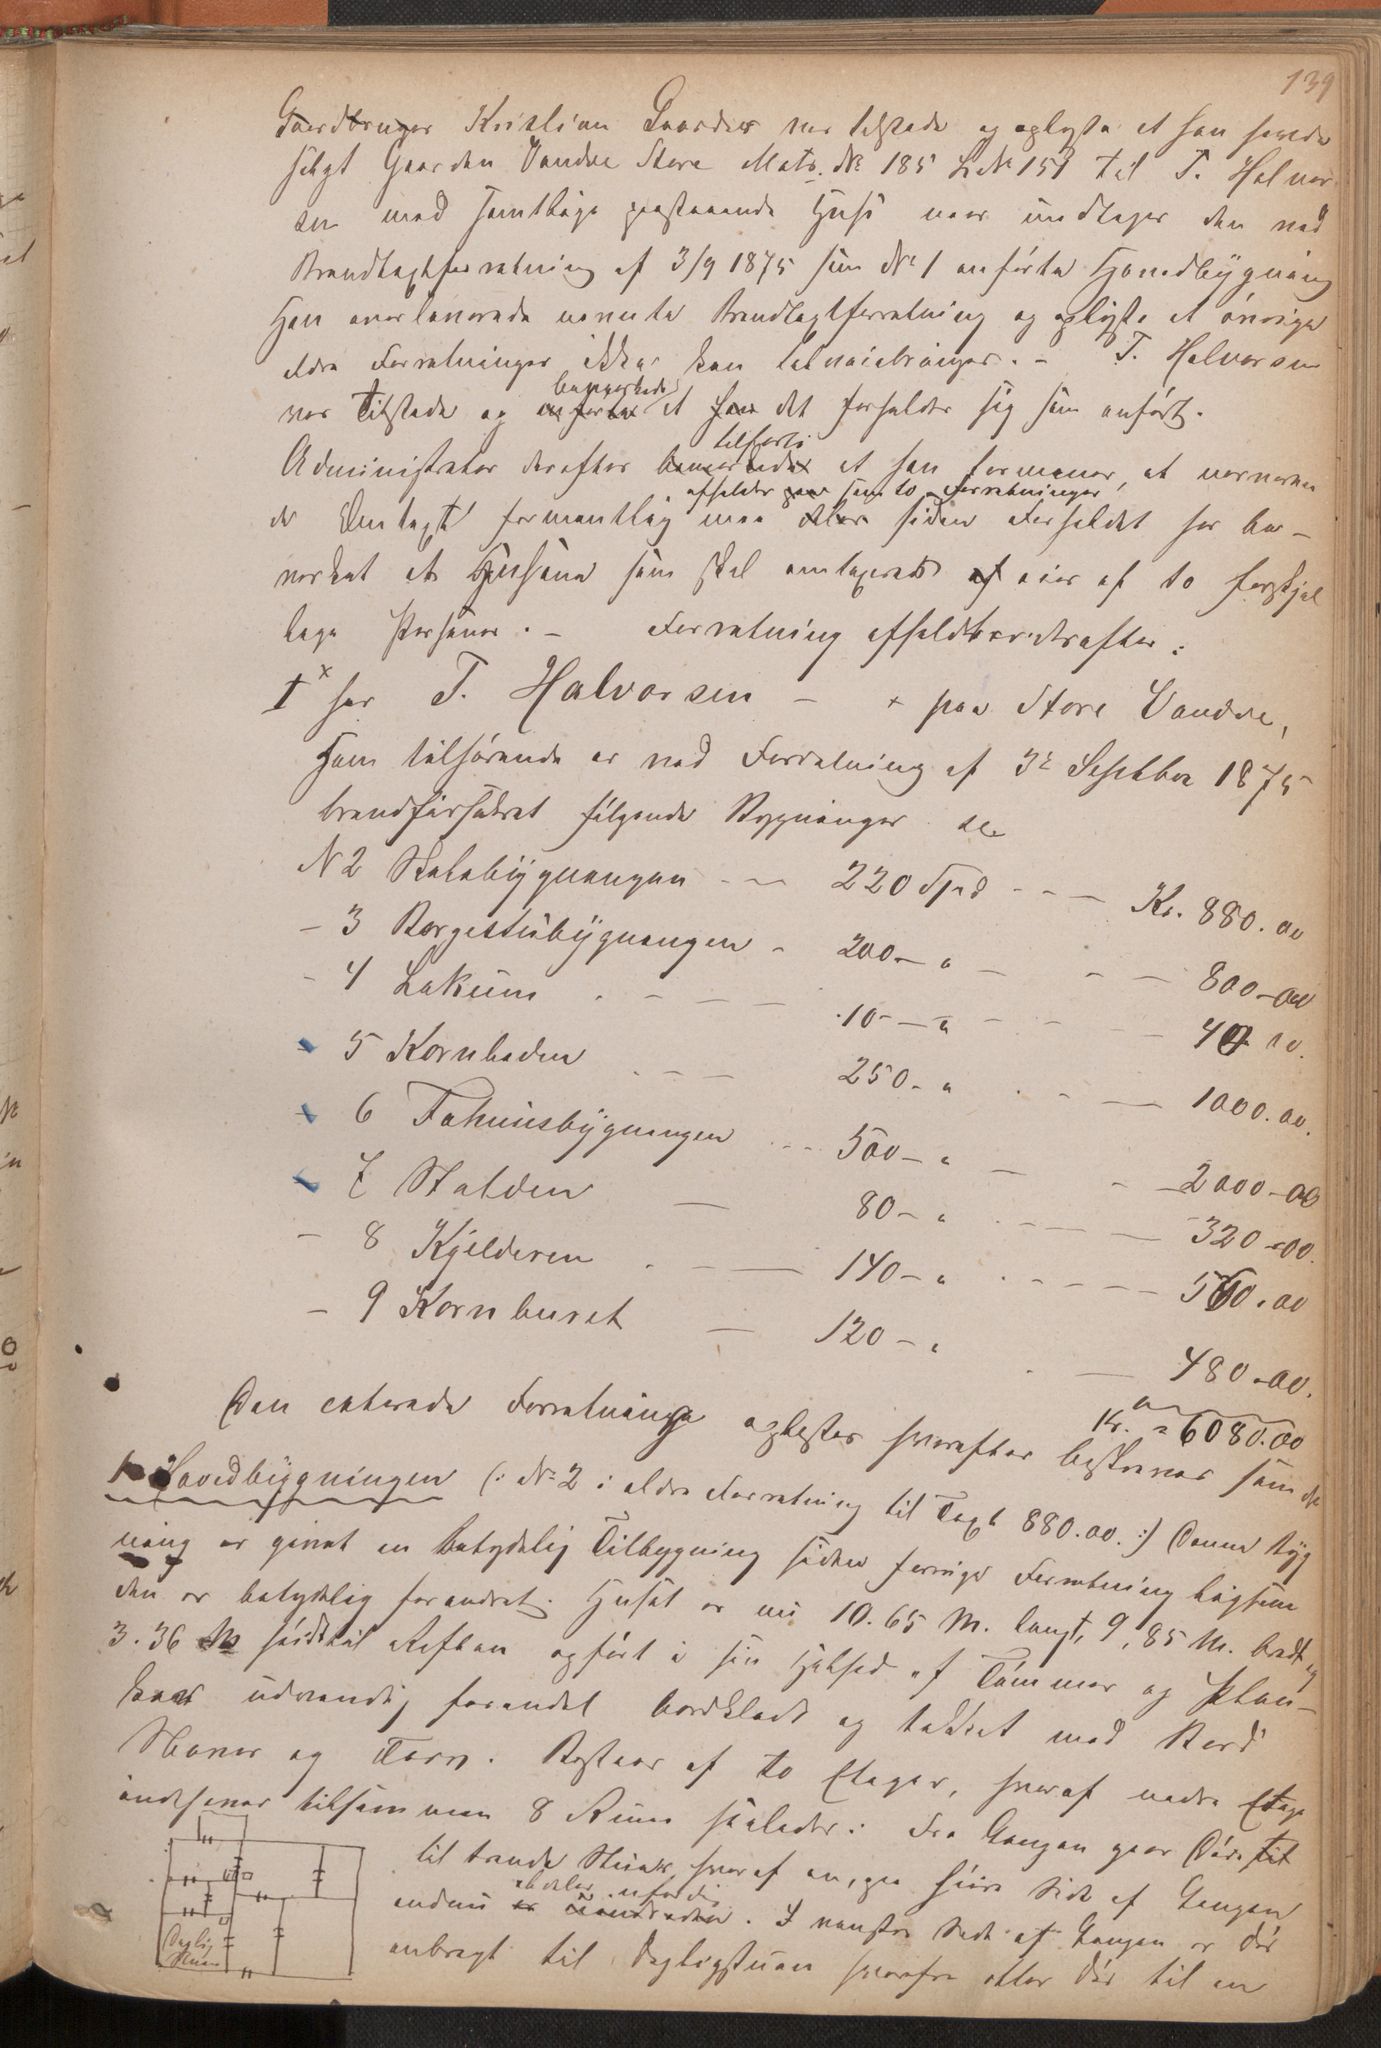 139
Gaardbruger Kristian Gaarder var tilstede og oplyste at han havde
solgt Gaarden Vandre Store Matr. № 185 L№ 151 til T. Halvor
sen med samtlige paastaaende Huse naar undtages den ved
Brandtaxtforretning af 3/9 1875 som № 1 anførte Hovedbygning
Han overleverede nævnte Brandtaxtforretning og oplyste at øvrige
eldre Forretninger ikke kan tilveiebringes. - T. Halvorsen
bemærkede
var Tilstede og anførte at han det forholder sig som anført.
tilførte
Administrator derefter bemærkede at han formener, at nærværen
afholdes som to Forretninger
de Omtaxt formentlig maa deles siden Forholdet har be-
virket at Husene som skal omtaxeres af eies af to forskjel
lige Personer. - Forretning afholdtes derefter:
I x for T. Halvorsen - x paa Store Vandre,
Ham tilhørende er ved Forretning af 3de Septbr 1875
brandforsikret følgende Bygninger
N 2 Stuebygningen - - 220 Spd - - - Kr. 880.00
- 3 Borgestubygningen - 200 - " - - - 800-00
- 4 Lukum . - - - 10 - " - - - 40 00.
- 5 Kornladen . - - 250 - " . - - 1000.00.
- 6 Fæhuusbygningen - - 500 - " - - 2000-00
- 7 Stalden - 80 - " . - - 320-00.
- 8 Kjelderen . - - 140 - " . - - - 560.00
- 9 Kornburet - 120 - " . - 480-00.
Kr. = 6080.00
Den citerede Forretning oplæstes hvorefter beskrives som
1 Hovedbygningen (: № 2 i eldre Forretning til Taxt 880.00.:) Denne Byg
ning er givet en betydelig Tilbygning siden forrige Forretning ligesom
den er betydelig forandret. Huset er nu 10.65 M. langt, 9,85 M. bredt og
3.36 M høidt til Raften opført i sin Helhed af Tømmer og Plan-
ker udvendig forandet bordklædt og tækket med Bord
Næver og Torv. Bestaar af to Etager, hvoraf nedre Etage
indehaver tilsammen 8 Rum saaledes: Fra Gangen gaar Døre til
til tvende Stuer hvoraf en, paa høire Side af Gangen
aldeles uferdig
endnu er uindredet. I venstre Side af Gangen er Dør
anbragt til Dagligstuen hvorfra atter Dør til en
Daglig
Stuen